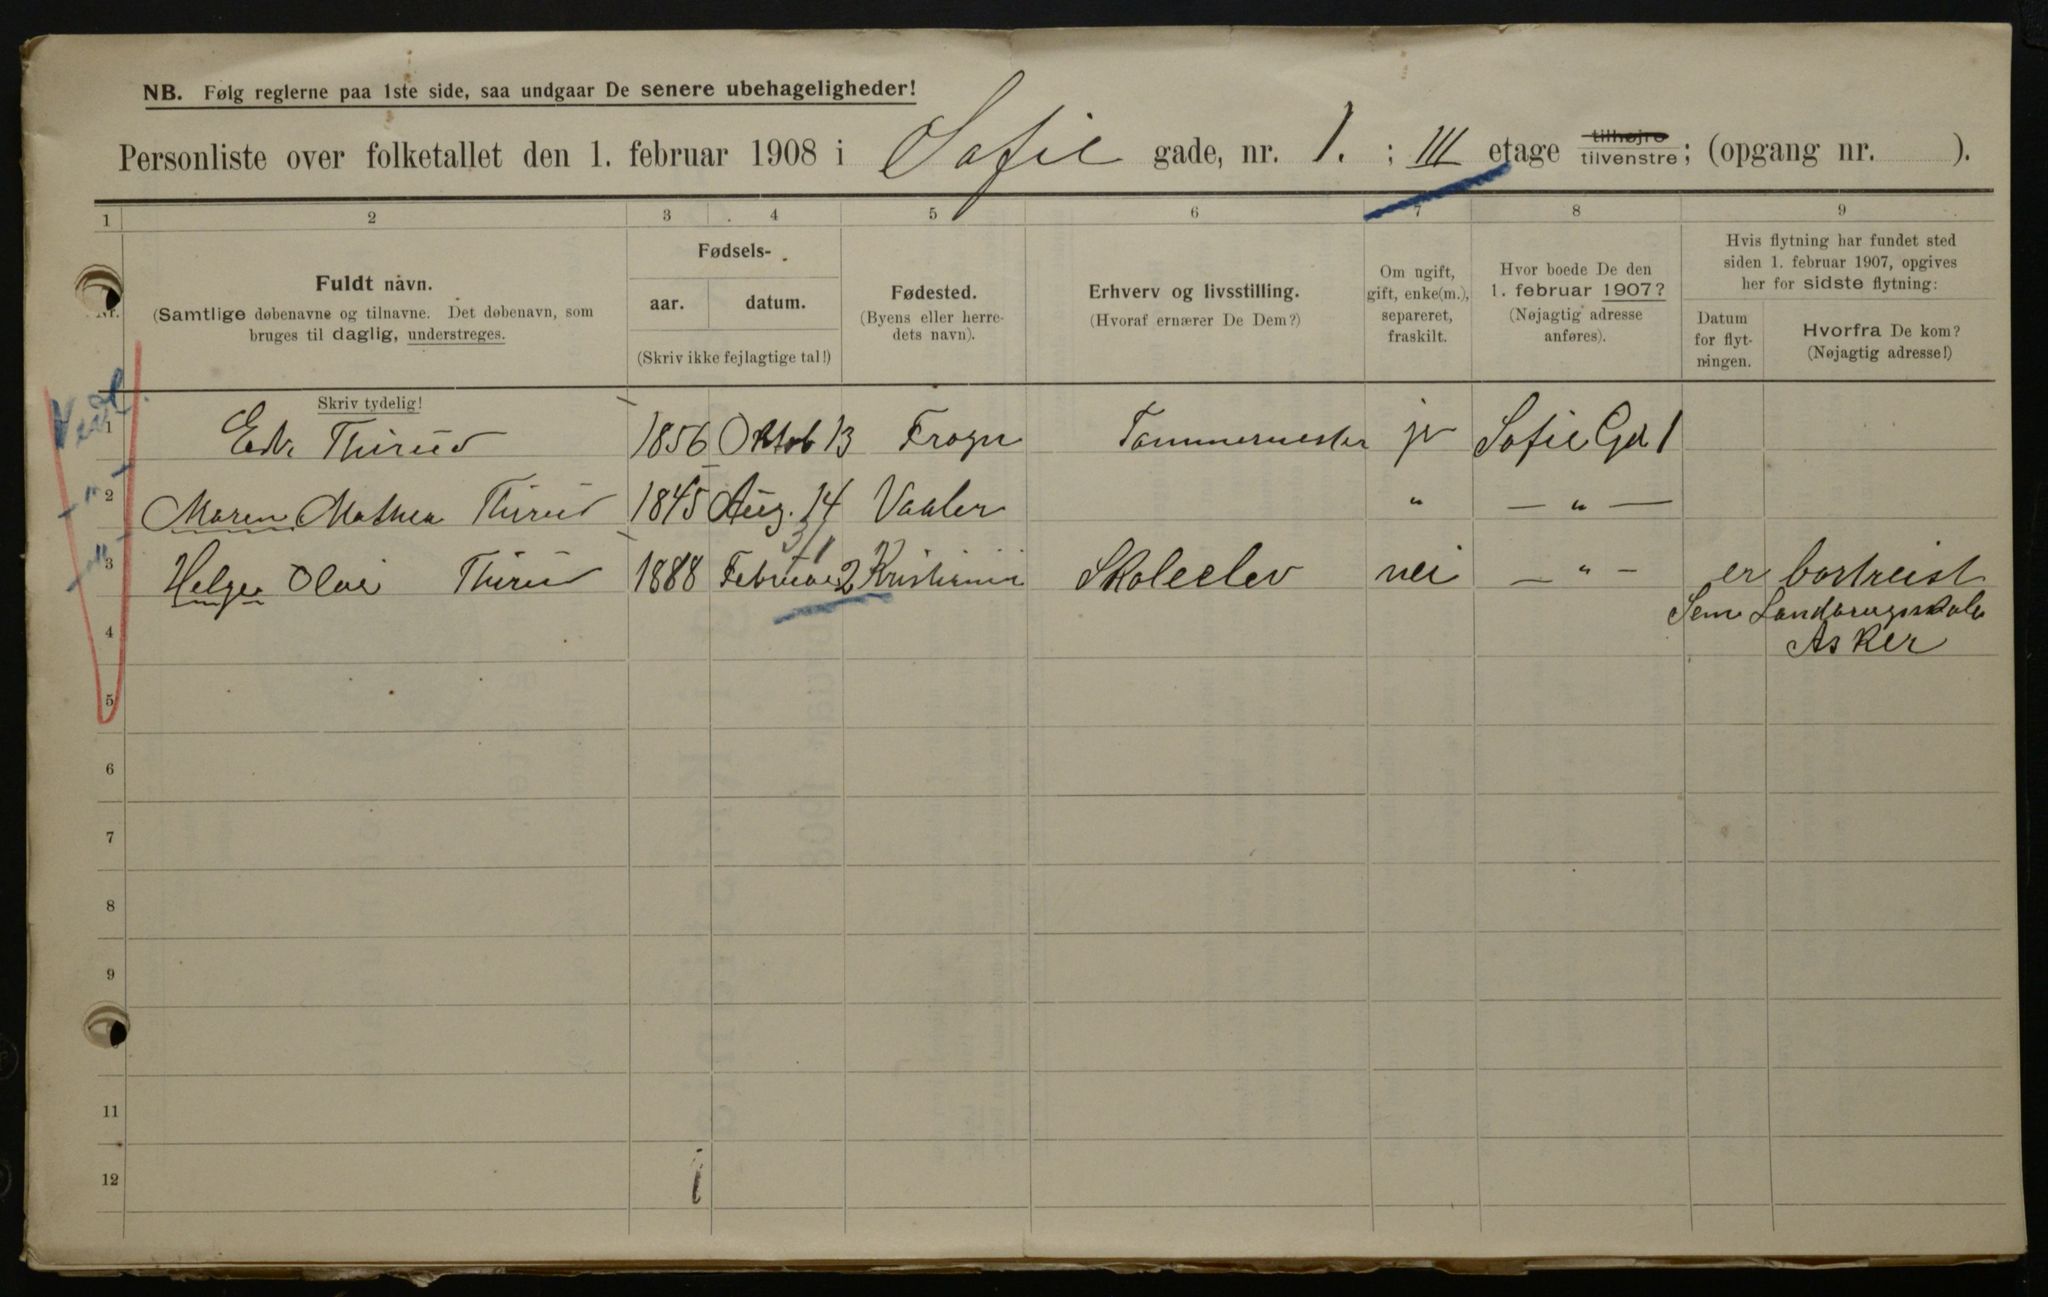 NB. Følg reglerne paa 1ste side, saa undgaar De senere ubehageligheder!
Personliste over folketallet den 1. februar 1908 i Sofie gade, nr. 1. ; III etage tilhøjre tilvenstre; (opgang nr. ).
1 2 3 4 5 6 7 8 9
Nr.
Fuldt navn.
(Samtlige døbenavne og tilnavne. Det døbenavn, som
bruges til daglig, understreges.
Skriv tydelig!
Fødsels-
aar. datum.
(Skriv ikke fejlagtige tal!)
Fødested.
(Byens eller herre-
dets navn).
Erhverv og livsstilling.
(Hvoraf ernærer De Dem?)
Om ugift,
gift, enke(m.),
separeret,
fraskilt.
Hvor boede De den
1. februar 1907?
(Nøjagtig adresse
anføres).
Hvis flytning har fundet sted
siden 1. februar 1907, opgives
her for sidste flytning:
Datum
for flyt-
ningen.
Hvorfra De kom?
(Nøjagtig adresse!)
1 Edv. Thirud 1856 Oktob 13 Frogn Tømmermester ja Sofie Gd 1
2 Maren Mathea Thirud 1845 Aug. 14 Vaaler " — " —
3/1
3 Helge Olai Thirud 1888 Februar 2 Kristiania Skoleelev nei — " — er bortreist
4 Sem Landbrugsskole
Asker
5
6
7
8
9
11
12